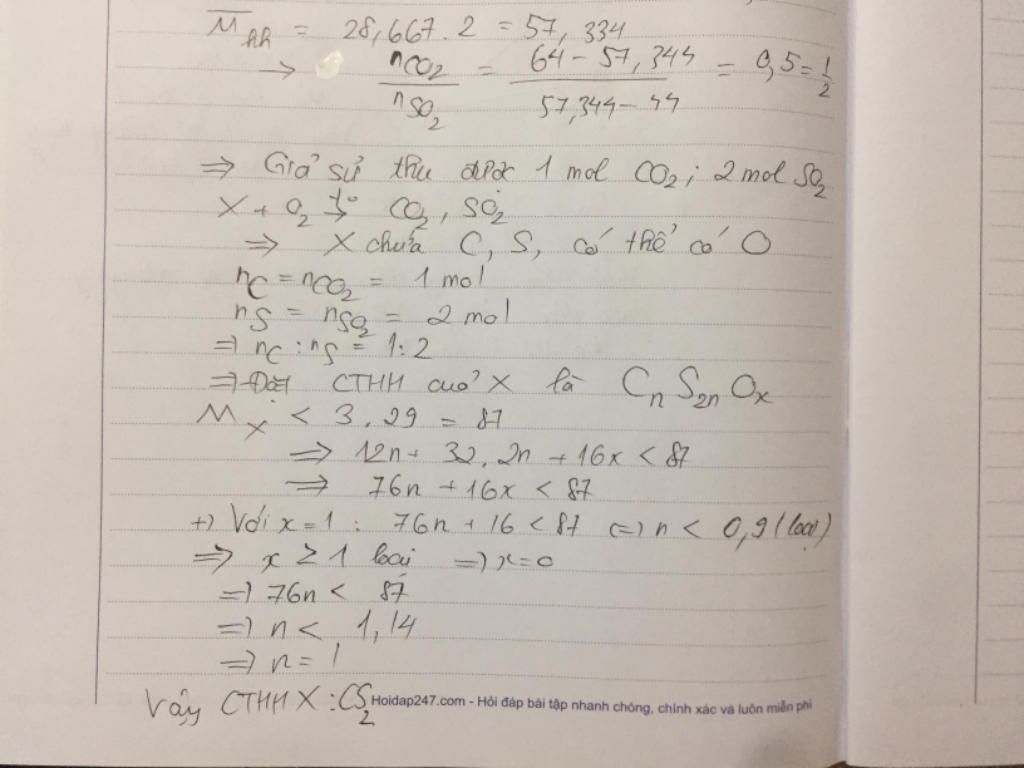 M̅hh = 28,667.2 = 57,334
→ nCO₂/nSO₂ = (64 - 57,344)/(57,344 - 44) = 0,5 = 1/2
⇒ Giả sử thu được 1 mol CO₂; 2 mol SO₂
X + O₂ →(t°) CO₂, SO₂
⇒ X chứa C, S, có thể có O
nC = nCO₂ = 1 mol
nS = nSO₂ = 2 mol
⇒ nC : nS = 1:2
⇒ Đặt CTHH của X là CₙS₂ₙOₓ
Mₓ < 3.29 = 87
⇒ 12n + 32.2n + 16x < 87
⇒ 76n + 16x < 87
+) Với x = 1 : 76n + 16 < 87 (=) n < 0,9 (loại)
⇒ x ≥ 1 loại =) x = 0
=) 76n < 87
=) n < 1,14
=) n = 1
Vậy CTHH X : CS₂
Hoidap247.com - Hỏi đáp bài tập nhanh chóng, chính xác và luôn miễn phí